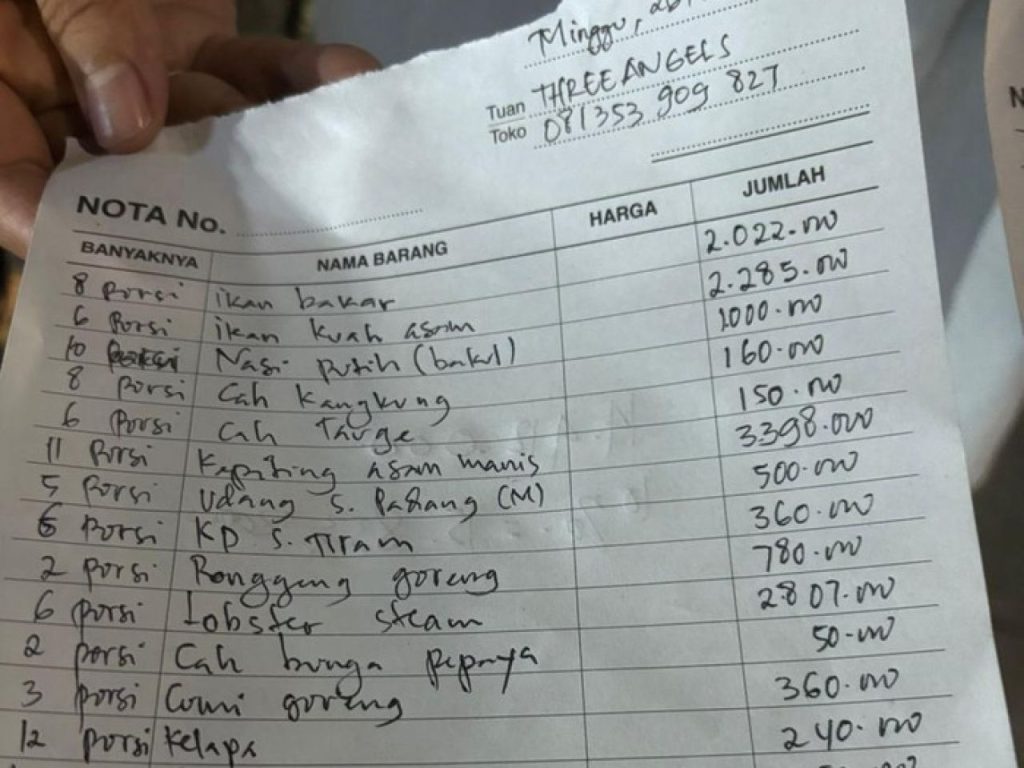 Minggu,
Tuan THREE ANGELS
Toko 081353 909 827
NOTA No.
BANYAKNYA NAMA BARANG HARGA JUMLAH
8 porsi ikan bakar 2.022.000
6 Porsi ikan kuah asam 2.285.000
10 Nasi putih (bakul) 1000.000
8 porsi Cah kangkung 160.000
6 porsi Cah tauge 150.000
11 Porsi Kepiting asam manis 3398.000
5 Porsi Udang s. Padang (M) 500.000
6 Porsi KP s. Tiram 360.000
2 porsi Ronggeng goreng 780.000
6 porsi Lobster steam 2807.000
2 porsi Cah bunga pepaya 50.000
3 porsi Cumi goreng 360.000
12 porsi Kelapa 240.000